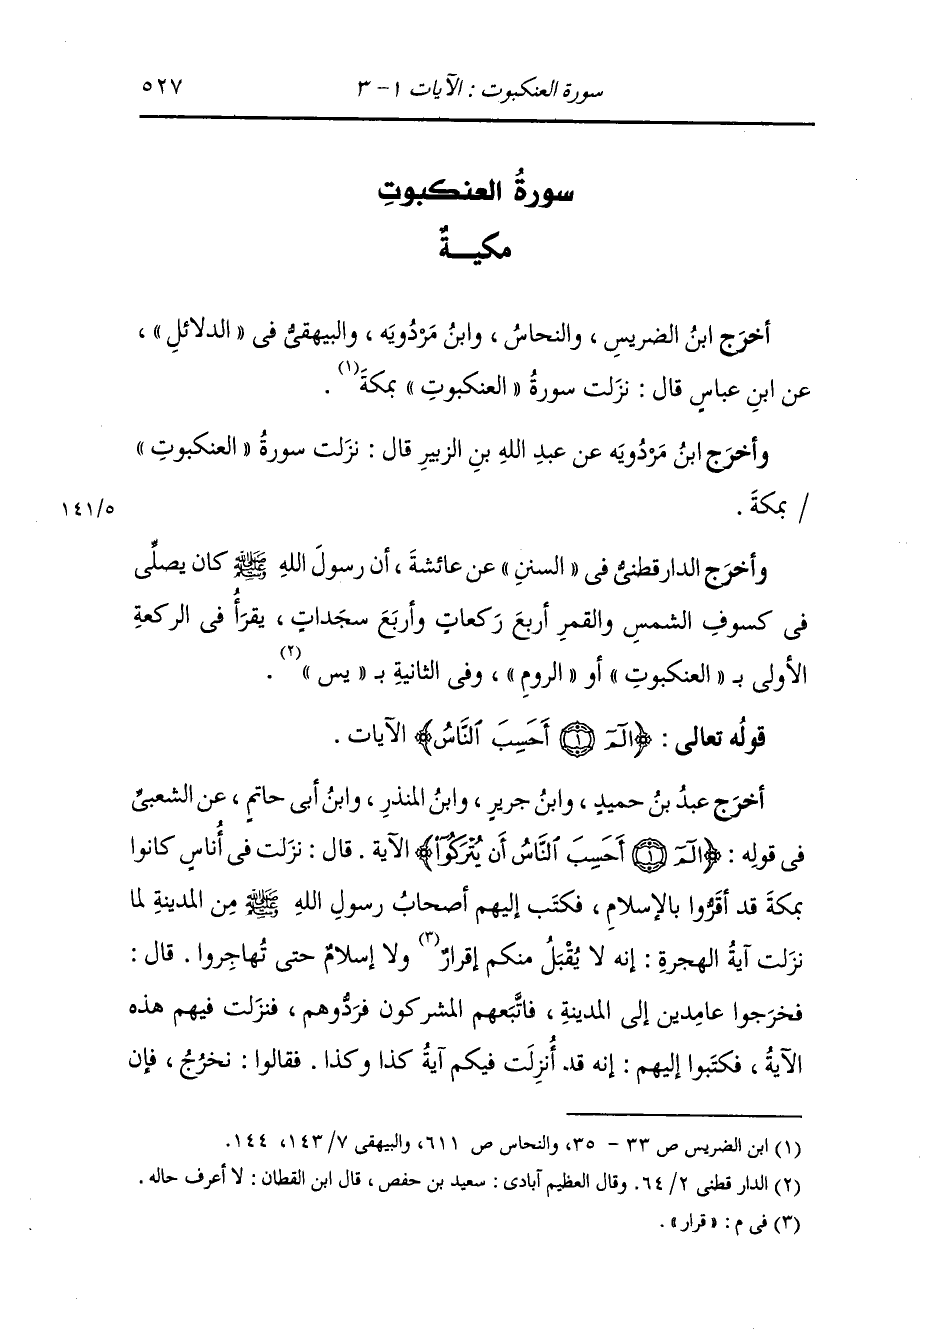 سورة العنكبوت : الآيات ١ - ٣ ٥٢٧
سورةُ العنكبوتِ
مكيــةٌ
أخرَج ابنُ الضريسِ ، والنحاسُ ، وابنُ مَرْدُويَه ، والبيهقىُّ فى « الدلائلِ » ،
عن ابنِ عباسٍ قال : نزَلت سورةُ « العنكبوتِ » بمكةَ(١) .
وأخرَج ابنُ مَرْدُويَه عن عبدِ اللهِ بنِ الزبيرِ قال : نزَلت سورةُ « العنكبوتِ »
/ بمكةَ . ١٤١/٥
وأخرَج الدارقطنىُّ فى « السننِ » عن عائشةَ ، أن رسولَ اللهِ ﷺ كان يصلِّى
فى كسوفِ الشمسِ والقمرِ أربعَ رَكعاتٍ وأربَعَ سجَداتٍ ، يقرَأُ فى الركعةِ
الأولى بـ « العنكبوتِ » أو « الرومِ » ، وفى الثانيةِ بـ « يس »(٢) .
قولُه تعالى : ﴿الٓمٓ ١ أَحَسِبَ ٱلنَّاسُ﴾ الآيات .
أخرَج عبدُ بنُ حميدٍ ، وابنُ جريرٍ ، وابنُ المنذرِ ، وابنُ أبى حاتمٍ ، عن الشعبىِّ
فى قولِه : ﴿الٓمٓ ١ أَحَسِبَ ٱلنَّاسُ أَن يُتْرَكُوٓا۟﴾ الآية . قال : نزَلت فى أُناسٍ كانوا
بمكةَ قد أقَرُّوا بالإسلامِ ، فكتَب إليهم أصحابُ رسولِ اللهِ ﷺ مِن المدينةِ لما
نزَلت آيةُ الهجرةِ : إنه لا يُقْبَلُ منكم إقرارٌ(٣) ولا إسلامٌ حتى تُهاجِروا . قال :
فخرَجوا عامِدين إلى المدينةِ ، فاتَّبَعهم المشركون فرَدُّوهم ، فنزَلت فيهم هذه
الآيةُ ، فكتَبوا إليهم : إنه قد أُنزِلَت فيكم آيةُ كذا وكذا . فقالوا : نخرُجُ ، فإن
(١) ابن الضريس ص ٣٣ - ٣٥، والنحاس ص ٦١١، والبيهقى ٧/ ١٤٣، ١٤٤.
(٢) الدار قطنى ٢/ ٦٤. وقال العظيم آبادى : سعيد بن حفص ، قال ابن القطان : لا أعرف حاله .
(٣) فى م : « قرار » .